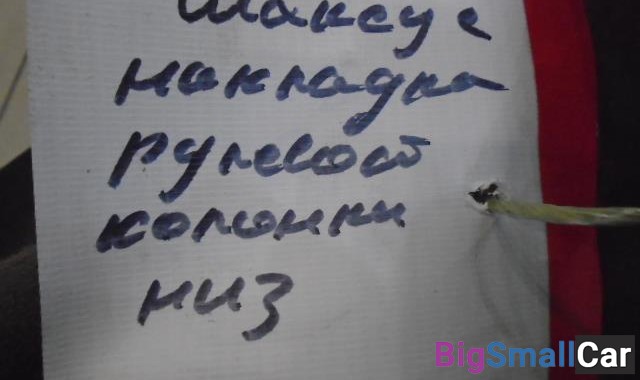 Максус
накладка
рулевой
колонки
низ
BigSmallCar